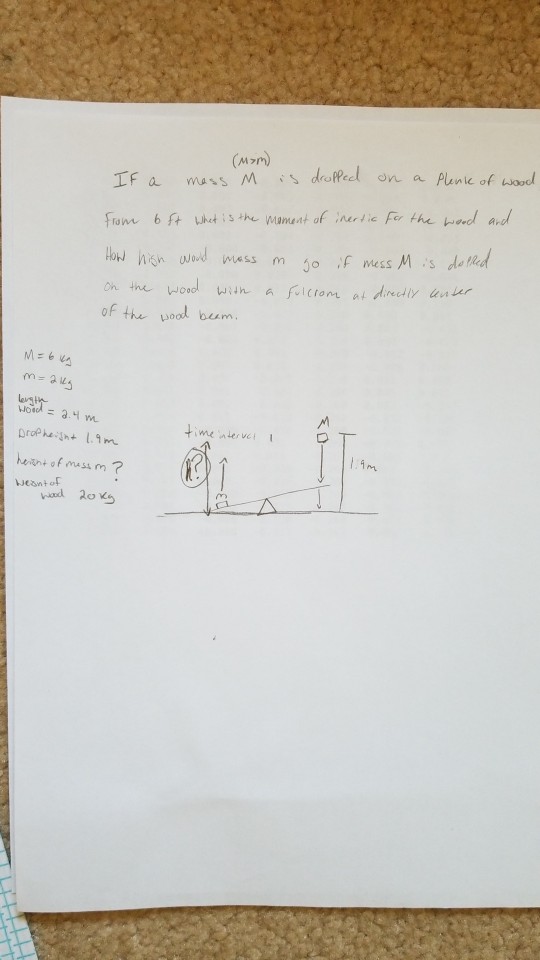 (M>m)
IF a mass M is dropped on a Plenk of wood
From 6 ft what is the moment of inertia For the wood and
How high would mass m go if mass M is dopped
on the wood with a fulcrom at directly center
of the wood beam.
M = 6 kg
m = 2 kg
length
wood = 2.4 m
Drop height 1.9m
height of mass m ?
Weight of
wood 20 kg
time interval 1
M
h?
1.9m
m